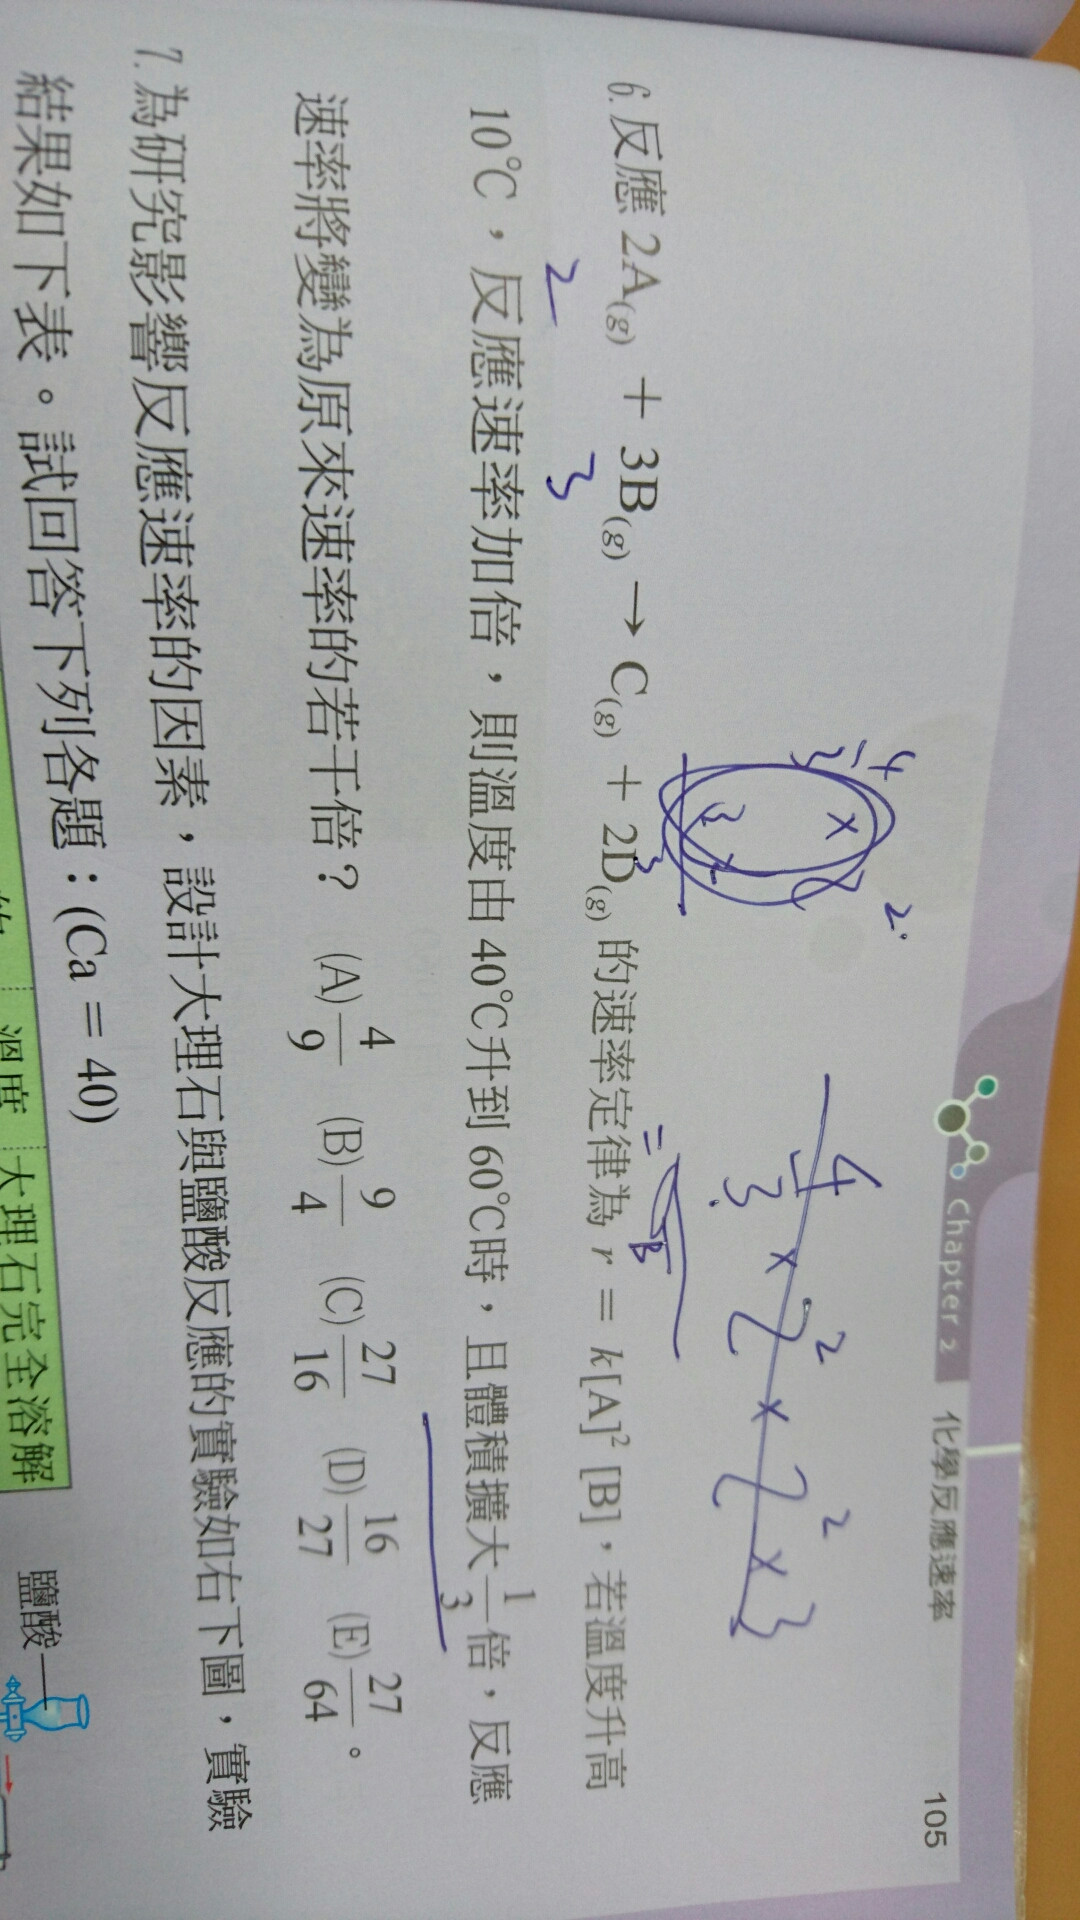 Chapter 2 化學反應速率 105
4
2
2
2
6. 反應 2A(g) + 3B(g) → C(g) + 2D(g) 的速率定律為 r = k[A]² [B]，若溫度升高
2 3
10℃，反應速率加倍，則溫度由 40℃升到 60℃時，且體積擴大 1/3 倍，反應
速率將變為原來速率的若干倍？ (A) 4/9 (B) 9/4 (C) 27/16 (D) 16/27 (E) 27/64 。
7. 為研究影響反應速率的因素，設計大理石與鹽酸反應的實驗如右下圖，實驗
結果如下表。試回答下列各題：(Ca = 40)
鹽酸
溫度 大理石完全溶解